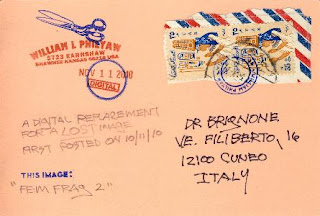 WILLIAM L PHILYAW
5723 EARNSHAW
SHAWNEE KANSAS 66216 USA
NOV 11 2010
DIGITAL
A DIGITAL REPLACEMENT
FOR A LOST IMAGE
FIRST POSTED ON 10/11/10
THIS IMAGE:
"FEIM FRAG 2"
DR BRIGNONE
VE. FILIBERTO, 16
12100 CUNEO
ITALY